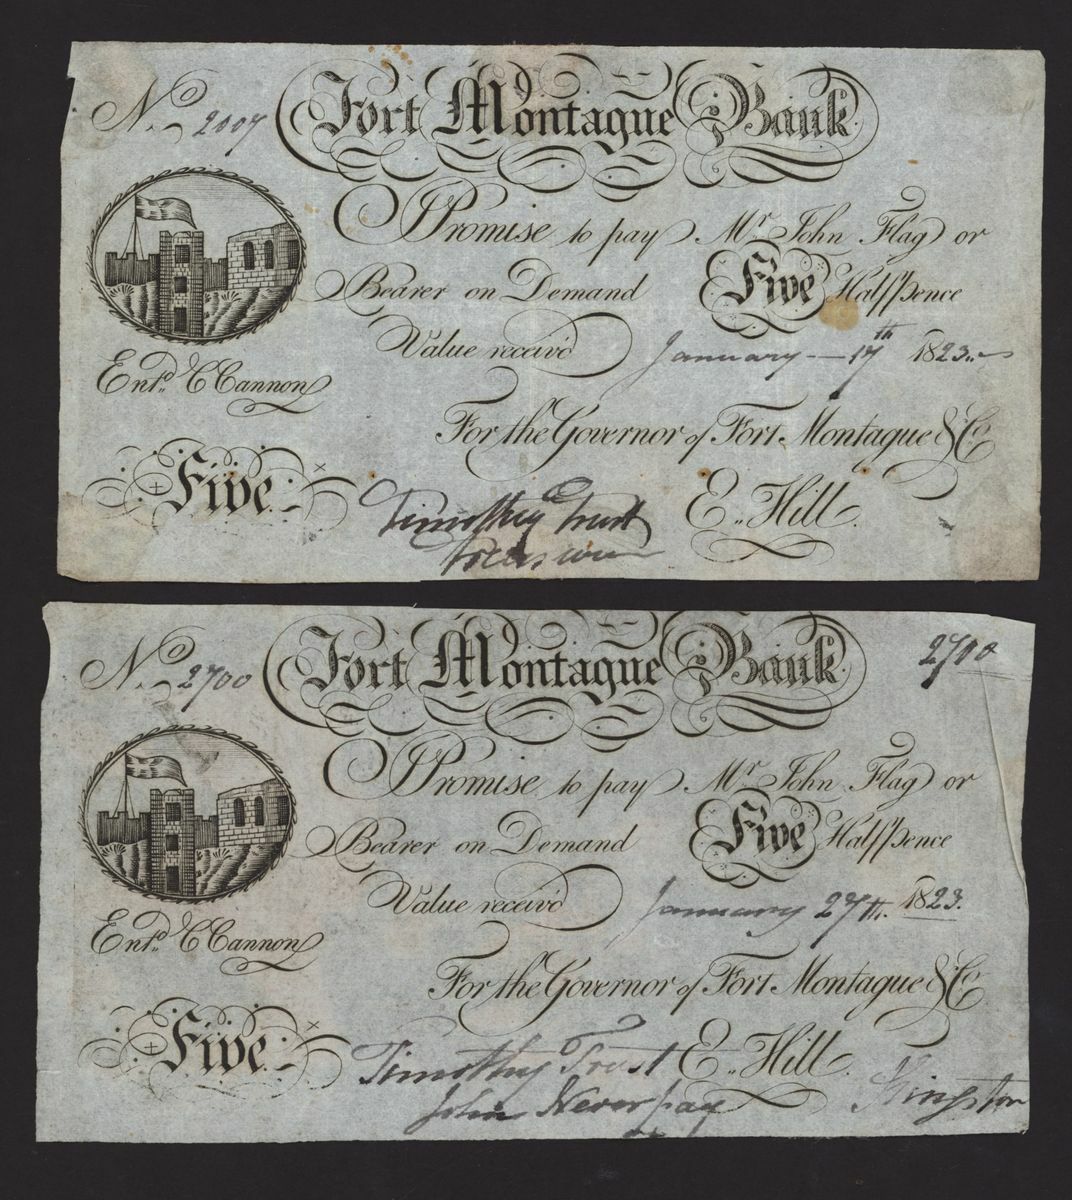 No. 2007
Fort Montague Bank
I Promise to pay Mr. John Flag or
Bearer on Demand Five Halfpence
Value receiv'd January 17th 1823
Entd. C Cannon
For the Governor of Fort Montague & Co
Five
Timothy Trust
E. Hill.
No. 2700
Fort Montague Bank
2700
I Promise to pay Mr. John Flag or
Bearer on Demand Five Halfpence
Value receiv'd January 27th. 1823.
Entd. C Cannon
For the Governor of Fort Montague & Co
Five
Timothy Trust E. Hill.
John Neverpay
Kingston